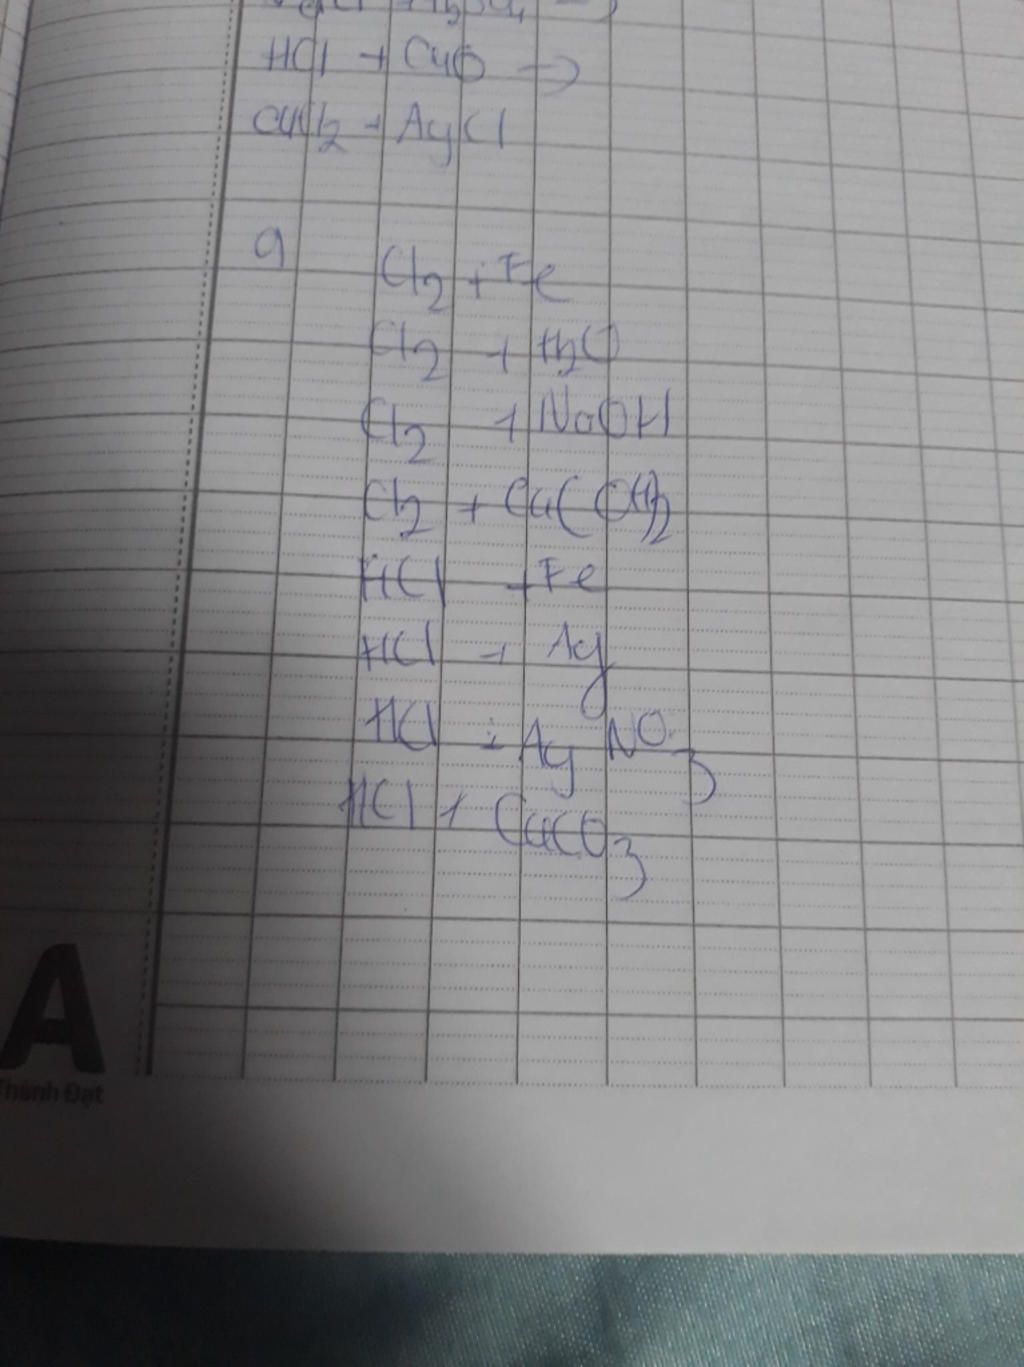 HCl + CuO →
CuCl2 + AgCl
9
Cl2 + Fe
Cl2 + H2O
Cl2 + NaOH
Cl2 + Ca(OH)2
HCl + Fe
HCl + Ag
HCl + AgNO3
HCl + CaCO3
A
Thành Đạt